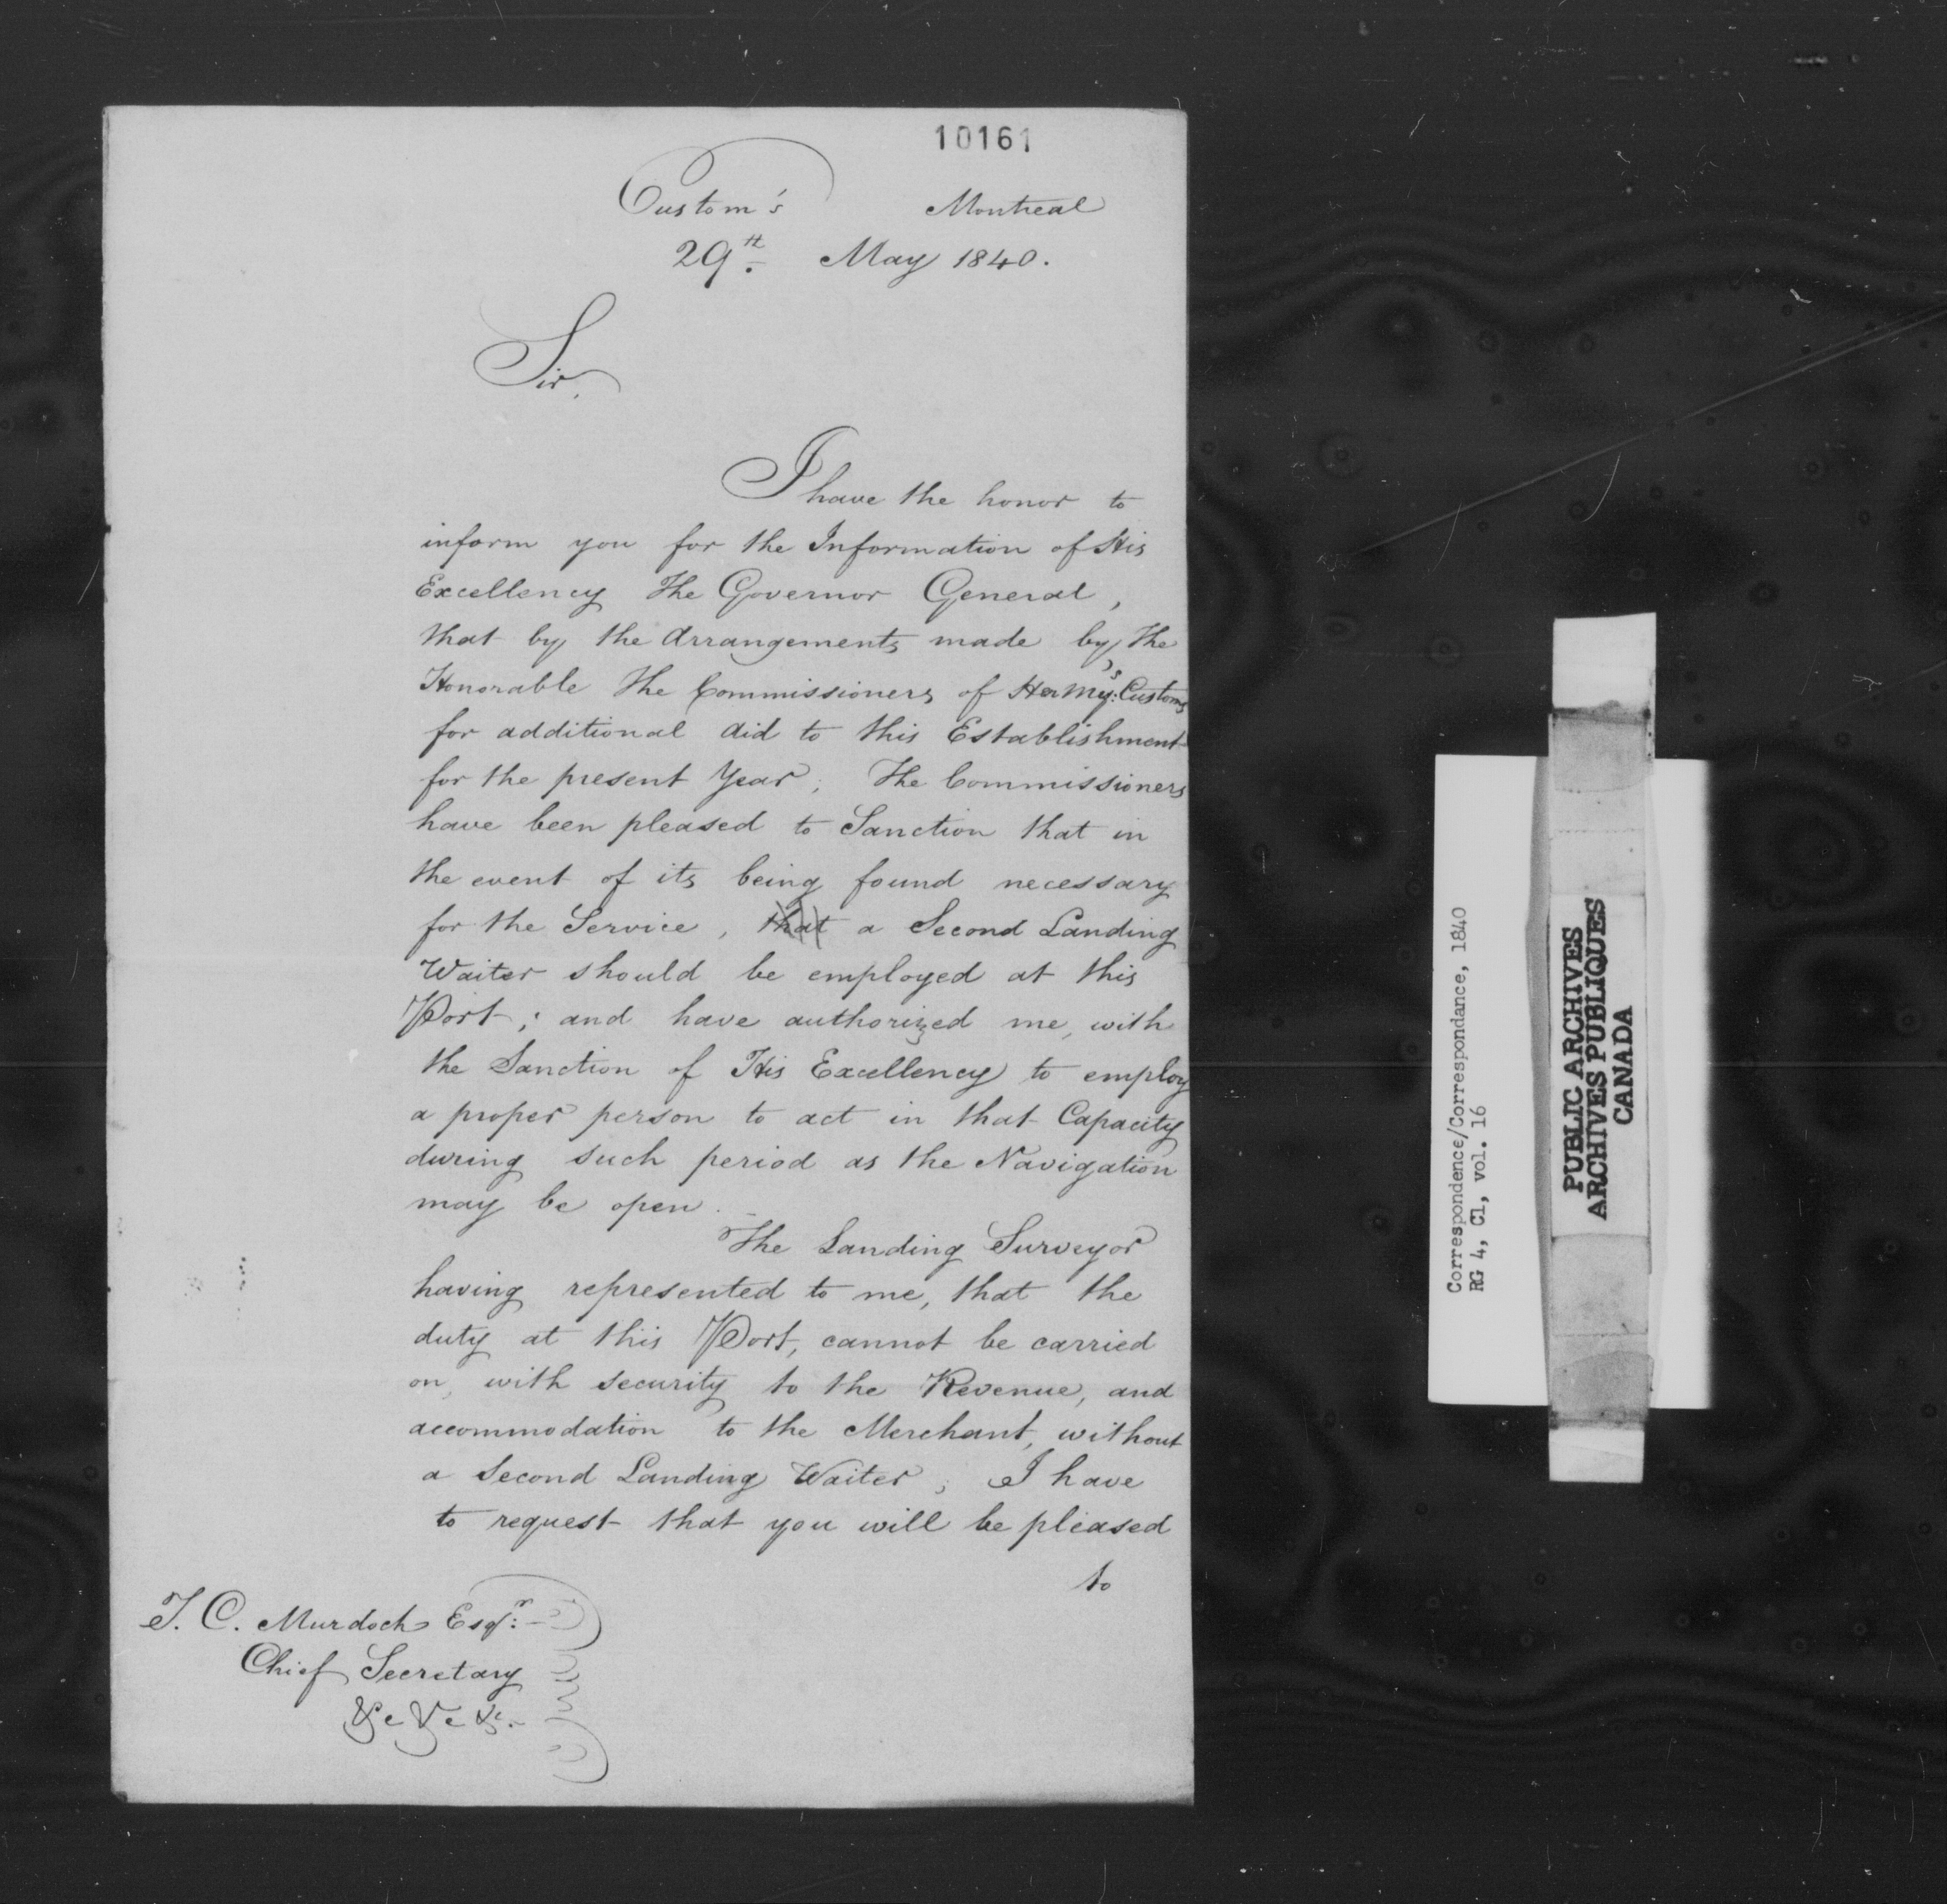 10161
Custom's Montreal
29th. May 1840.
Sir,
I have the honor to
inform you for the Information of His
Excellency The Governor General,
that by the Arrangements made by The
Honorable The Commissioners of Her My's: Customs
for additional aid to this Establishment
for the present Year; The Commissioners
have been pleased to Sanction that in
the event of its being found necessary
for the Service, that a Second Landing
Waiter should be employed at this
Port; and have authorized me, with
the Sanction of His Excellency to employ
a proper person to act in that Capacity
during such period as the Navigation
may be open.
The Landing Surveyor
having represented to me, that the
duty at this Port, cannot be carried
on, with security to the Revenue, and
accommodation to the Merchant, without
a Second Landing Waiter; I have
to request that you will be pleased
to
T. C. Murdoch Esqr:
Chief Secretary
&c &c &c.
Correspondence/Correspondance, 1840
RG 4, C1, vol. 16
PUBLIC ARCHIVES
ARCHIVES PUBLIQUES
CANADA